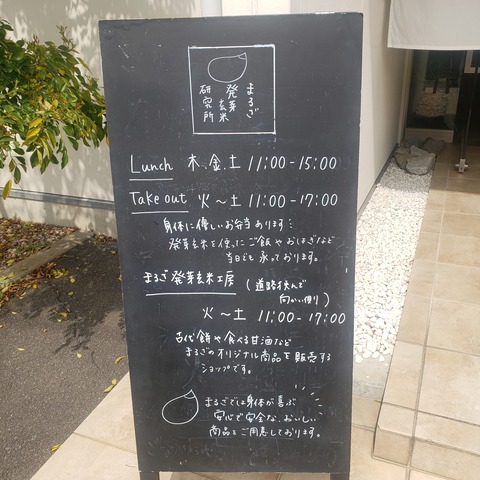 まるご
発芽玄米
研究所
Lunch 木、金、土 11:00-15:00
Take out 火～土 11:00-17:00
身体に優しいお弁当あります!
発芽玄米を使ったご飯やおはぎなど
当日でも承っております。
まるご発芽玄米工房 (道路挟んで
向かい側り)
火～土 11:00-17:00
古代餅や食べる甘酒など
まるごのオリジナル商品を販売する
ショップです。
まるごでは身体が喜ぶ
安心で安全な、おいしい
商品をご用意しております。